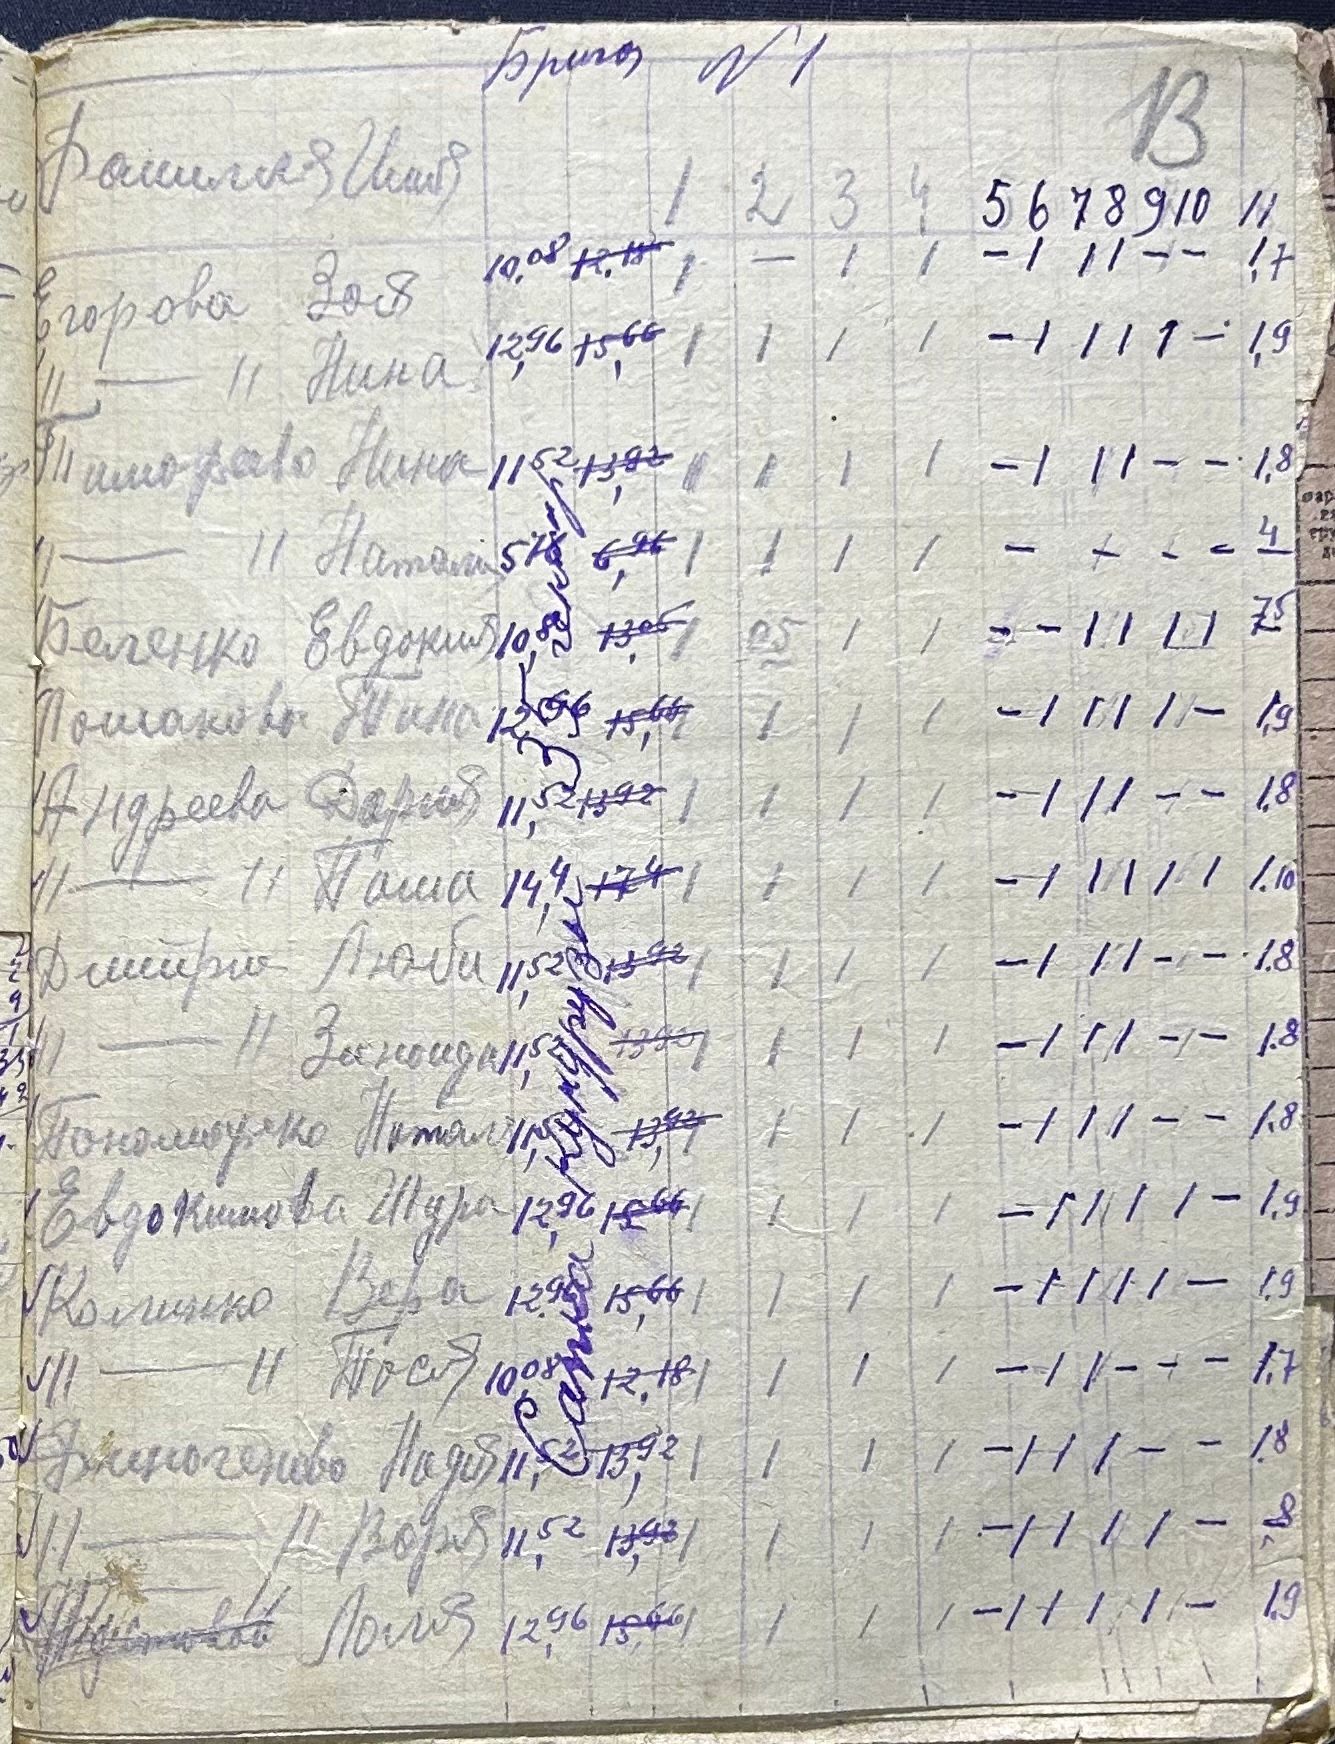 Бриго N 1
13
Фамилия Имя 1 2 3 4 5 6 7 8 9 10 11
Егорова Зоя 10,08 12,18 1 - 1 1 - 1 1 1 - - 1,7
" — " Нина 12,96 15,66 1 1 1 1 - 1 1 1 1 - 1,9
Тимофеево Нина 11,52 13,92 1 1 1 1 - 1 1 1 - - 1,8
" — " Натали 5,76 6,96 1 1 1 1 - - - 4
Беленко Евдокия 10,80 13,05 1 05 1 1 - - 1 1 1 1 7,5
Тина 12,96 15,66 1 1 1 1 - 1 1 1 1 - 1,9
Андреева Дария 11,52 13,92 1 1 1 1 - 1 1 1 - - 1.8
" — " Паша 14,4 17,4 1 1 1 1 - 1 1 1 1 1 1.10
Дмитри Люба 11,52 13,92 1 1 1 1 - 1 1 1 - - 1.8
" — " Зиноида 11,52 13,92 1 1 1 1 - 1 1 1 - - 1.8
Натали 11,52 13,92 1 1 1 1 - 1 1 1 - - 1.8
Евдокимова Шура 12,96 15,66 1 1 1 1 - 1 1 1 1 - 1,9
Калинко Вера 12,96 15,66 1 1 1 1 - 1 1 1 1 - 1,9
" — " Тося 10,08 12,18 1 1 1 1 - 1 1 - - - 1.7
Надя 11,52 13,92 1 1 1 1 - 1 1 1 - - 1.8
" — " Варя 11,52 13,92 1 1 1 1 - 1 1 1 1 - ,8
Лоля 12,96 15,66 1 1 1 1 - 1 1 1 1 - 1.9
Сапка кукурузы